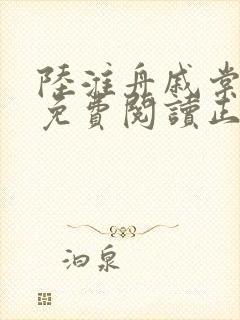 陸淮舟戚棠
免費閱讀正
泊泉